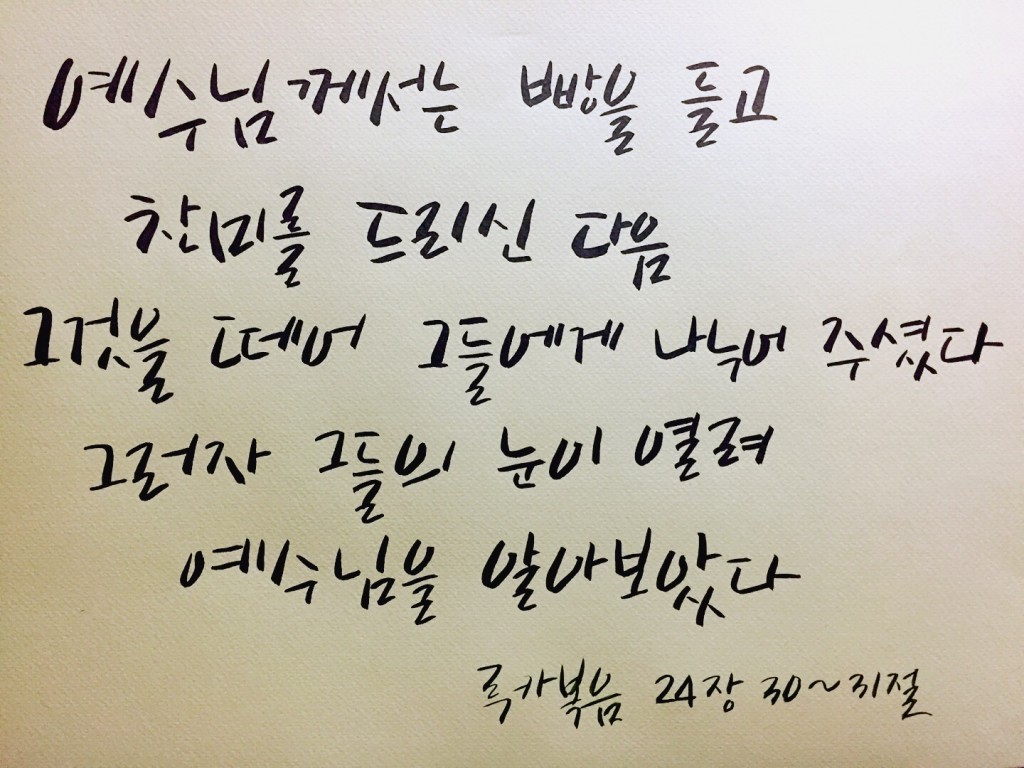 예수님께서는 빵을 들고
찬미를 드리신 다음
그것을 떼어 그들에게 나누어 주셨다
그러자 그들의 눈이 열려
예수님을 알아보았다
루카복음 24장 30~31절